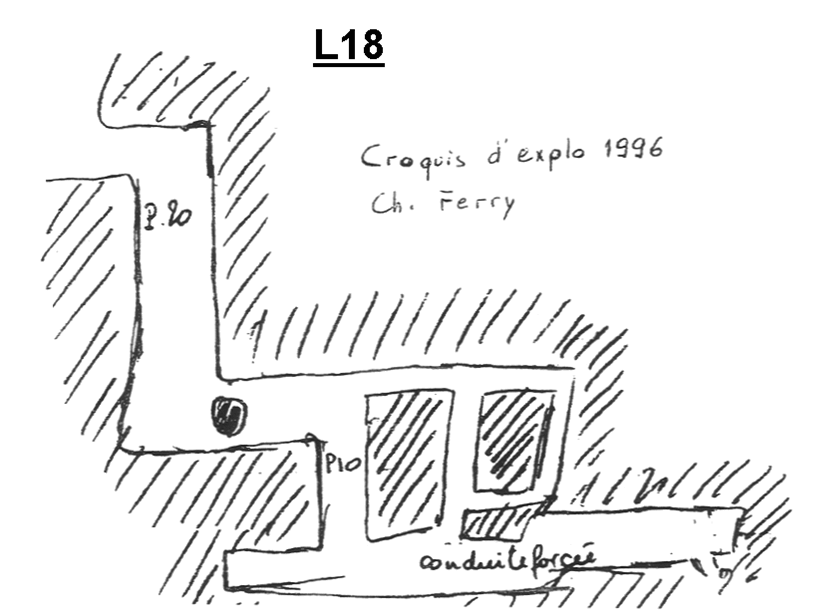 L18
Croquis d'explo 1996
Ch. Ferry
P.20
P10
conduite forcée